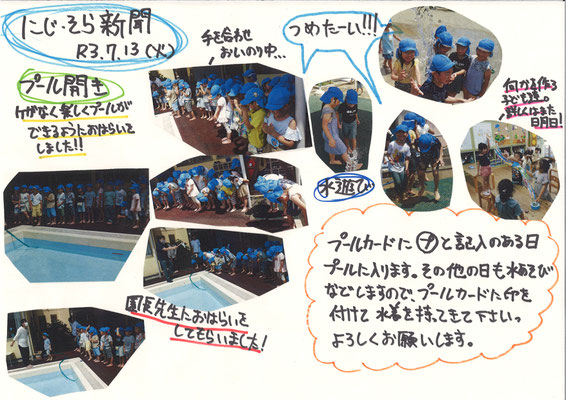 にじ・そら新聞
R3.7.13(火)
プール開き
ケガなく楽しくプールが
できるようにおはらいを
しました!!
手を合わせ
おいのり中…
つめたーい!!!
何かを作る
子ども達。
詳しくはまた
明日!
水遊び
園長先生におはらいを
してもらいました!
プールカードに㋫と記入のある日
プールに入ります。その他の日も水あそび
などしますので、プールカードに印を
付けて水着を持ってきて下さい。
よろしくお願いします。